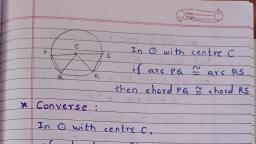 C
P S
Q R
In ⊙ with centre C
if arc PQ ≅ arc RS
then chord PQ ≅ chord RS
* Converse :
In ⊙ with centre C,